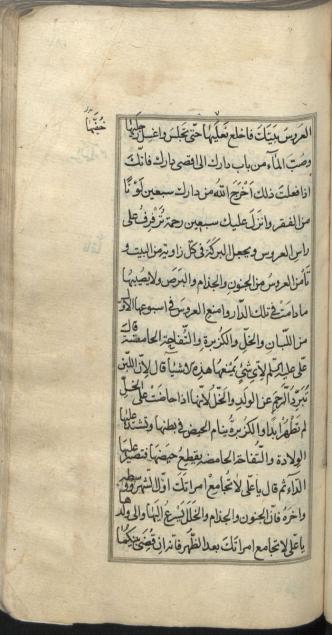 خفّها
العروس بيتك فاخلع نعليها حتّى تجلس واغسل رجليها
وصبّ المآء من باب دارك الى اقصى دارك فانّك
اذا فعلت ذلك اخرج اللّه من دارك سبعين لونًا
من الفقر وانزل عليك سبعين رحمة ترفرف على
راس العروس ويجعل البركة فى كلّ زاوية من البيت و
تأمن العروس من الجنون والجذام والبرص ولا يصيبها
ما دامت فى تلك الدار وامنع العروس فى اسبوعها الاوّل
من اللّبان والخلّ والكزبرة والتّفاحة الحامضة قال
علىّ عليه السّلم لاىّ شئ تمنعها هذه الاشيآء قال لانّ اللّبن
تبرد الرّحم عن الولد والخلّ لانّها اذا حاضت على الخلّ
لم تطهر ابدًا والكزبرة ينام الحيض فى بطنها وتشتد عليها
الولادة والتّفاحة الحامضه يقطع حيضها فتصير عليها
الدّاء ثم قال يا علىّ لا تجامع امراتك اوّل الشّهر ووسطه
واخره فانّ الجنون والجذام والخبل يسرع اليها والى ولدها
يا علىّ لا تجامع امراتك بعد الظّهر فانّه ان قضى بينكما